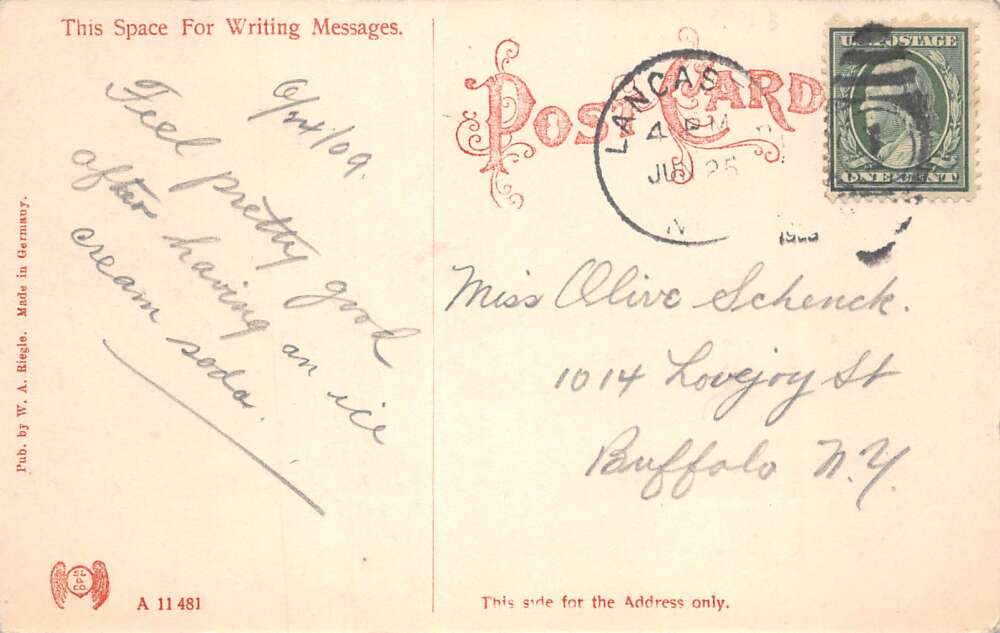 This Space For Writing Messages.
6/24/09.
Feel pretty good
after having an ice
cream soda.
Pub. by W. A. Riegle. Made in Germany.
A 11 481
POST CARD
LANCAS
4 PM
JUN 25
N
U.S. POSTAGE
ONE CENT
Miss Olive Schenck.
1014 Lovejoy St
Buffalo N.Y.
This side for the Address only.